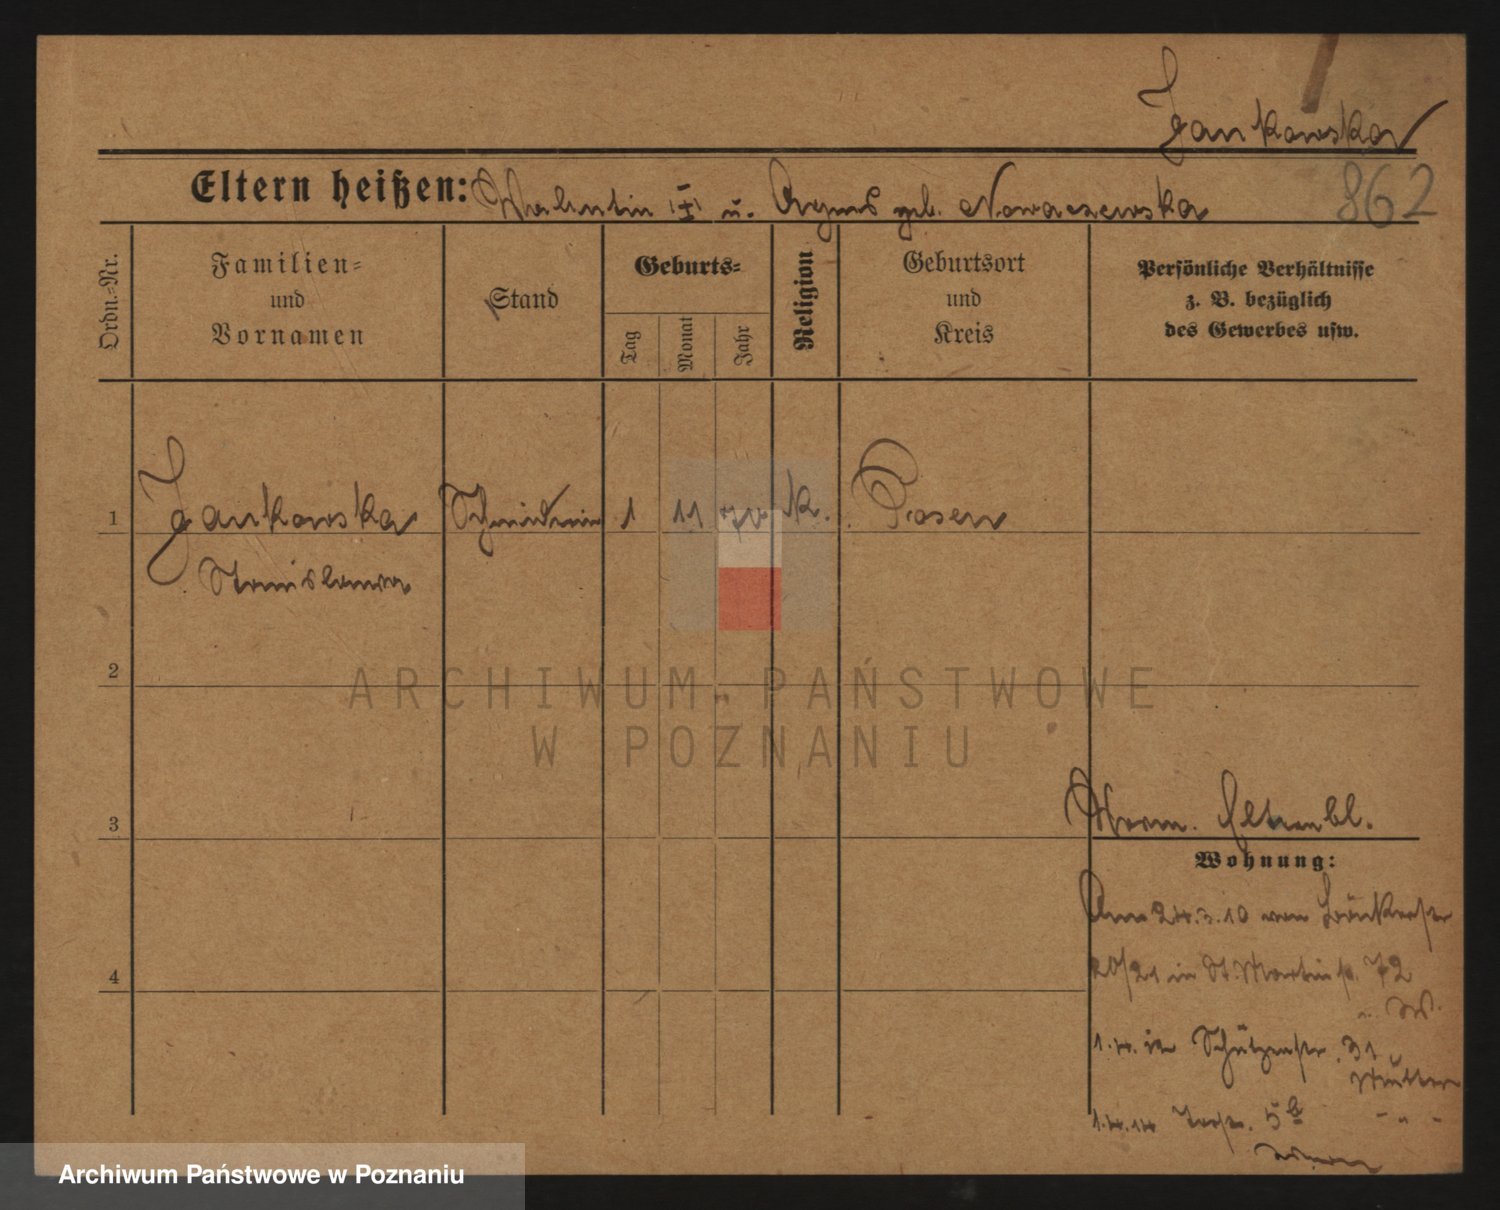 Jankowska
Eltern heißen: Valentin u. Agnes geb. Nowaczewska
862
Ordn.-Nr.
Familien-
und
Vornamen
Stand
Geburts-
Tag
Monat
Jahr
Religion
Geburtsort
und
Kreis
Persönliche Verhältnisse
z. B. bezüglich
des Gewerbes usw.
1 Jankowska Schneiderin 1 11 k. Posen
Stanislawa
2
3
Wohnung:
Am 24.3.10 von
20/21 in St. Martinstr. 72
1.4. in Schützenstr. 31
Mutter
1.4.14
4
ARCHIWUM PAŃSTWOWE
W POZNANIU
Archiwum Państwowe w Poznaniu